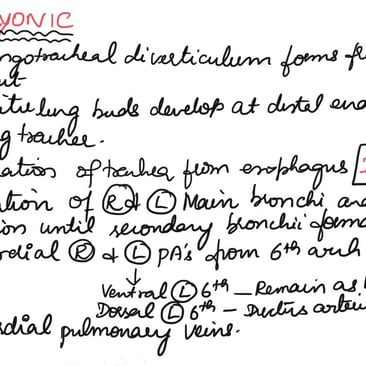 YONIC
ngotracheal diverticulum forms f
ut
itu lung buds develop at distal en
g trachea.
ation of trachea from esophagus
ation of (R) & (L) Main bronchi, an
ion until secondary bronchii forma
rdial (R) & (L) PA's from 6th arch
↓
Ventral (L) 6th — Remain as
Dorsal (L) 6th — Ductus arteri
dial pulmonary veins.